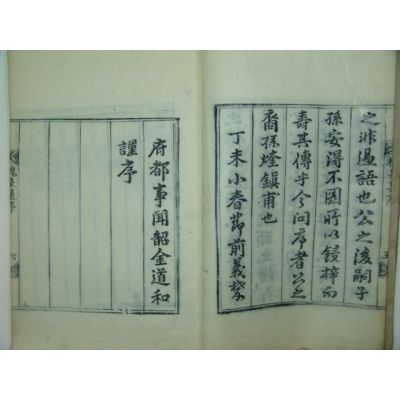 之非過語也公之後嗣子
孫安得不圖所以鋟梓而
壽其傳乎今問序者公之
裔孫鎭甫也
丁未小春節前義禁
府都事聞韶金道和
謹序